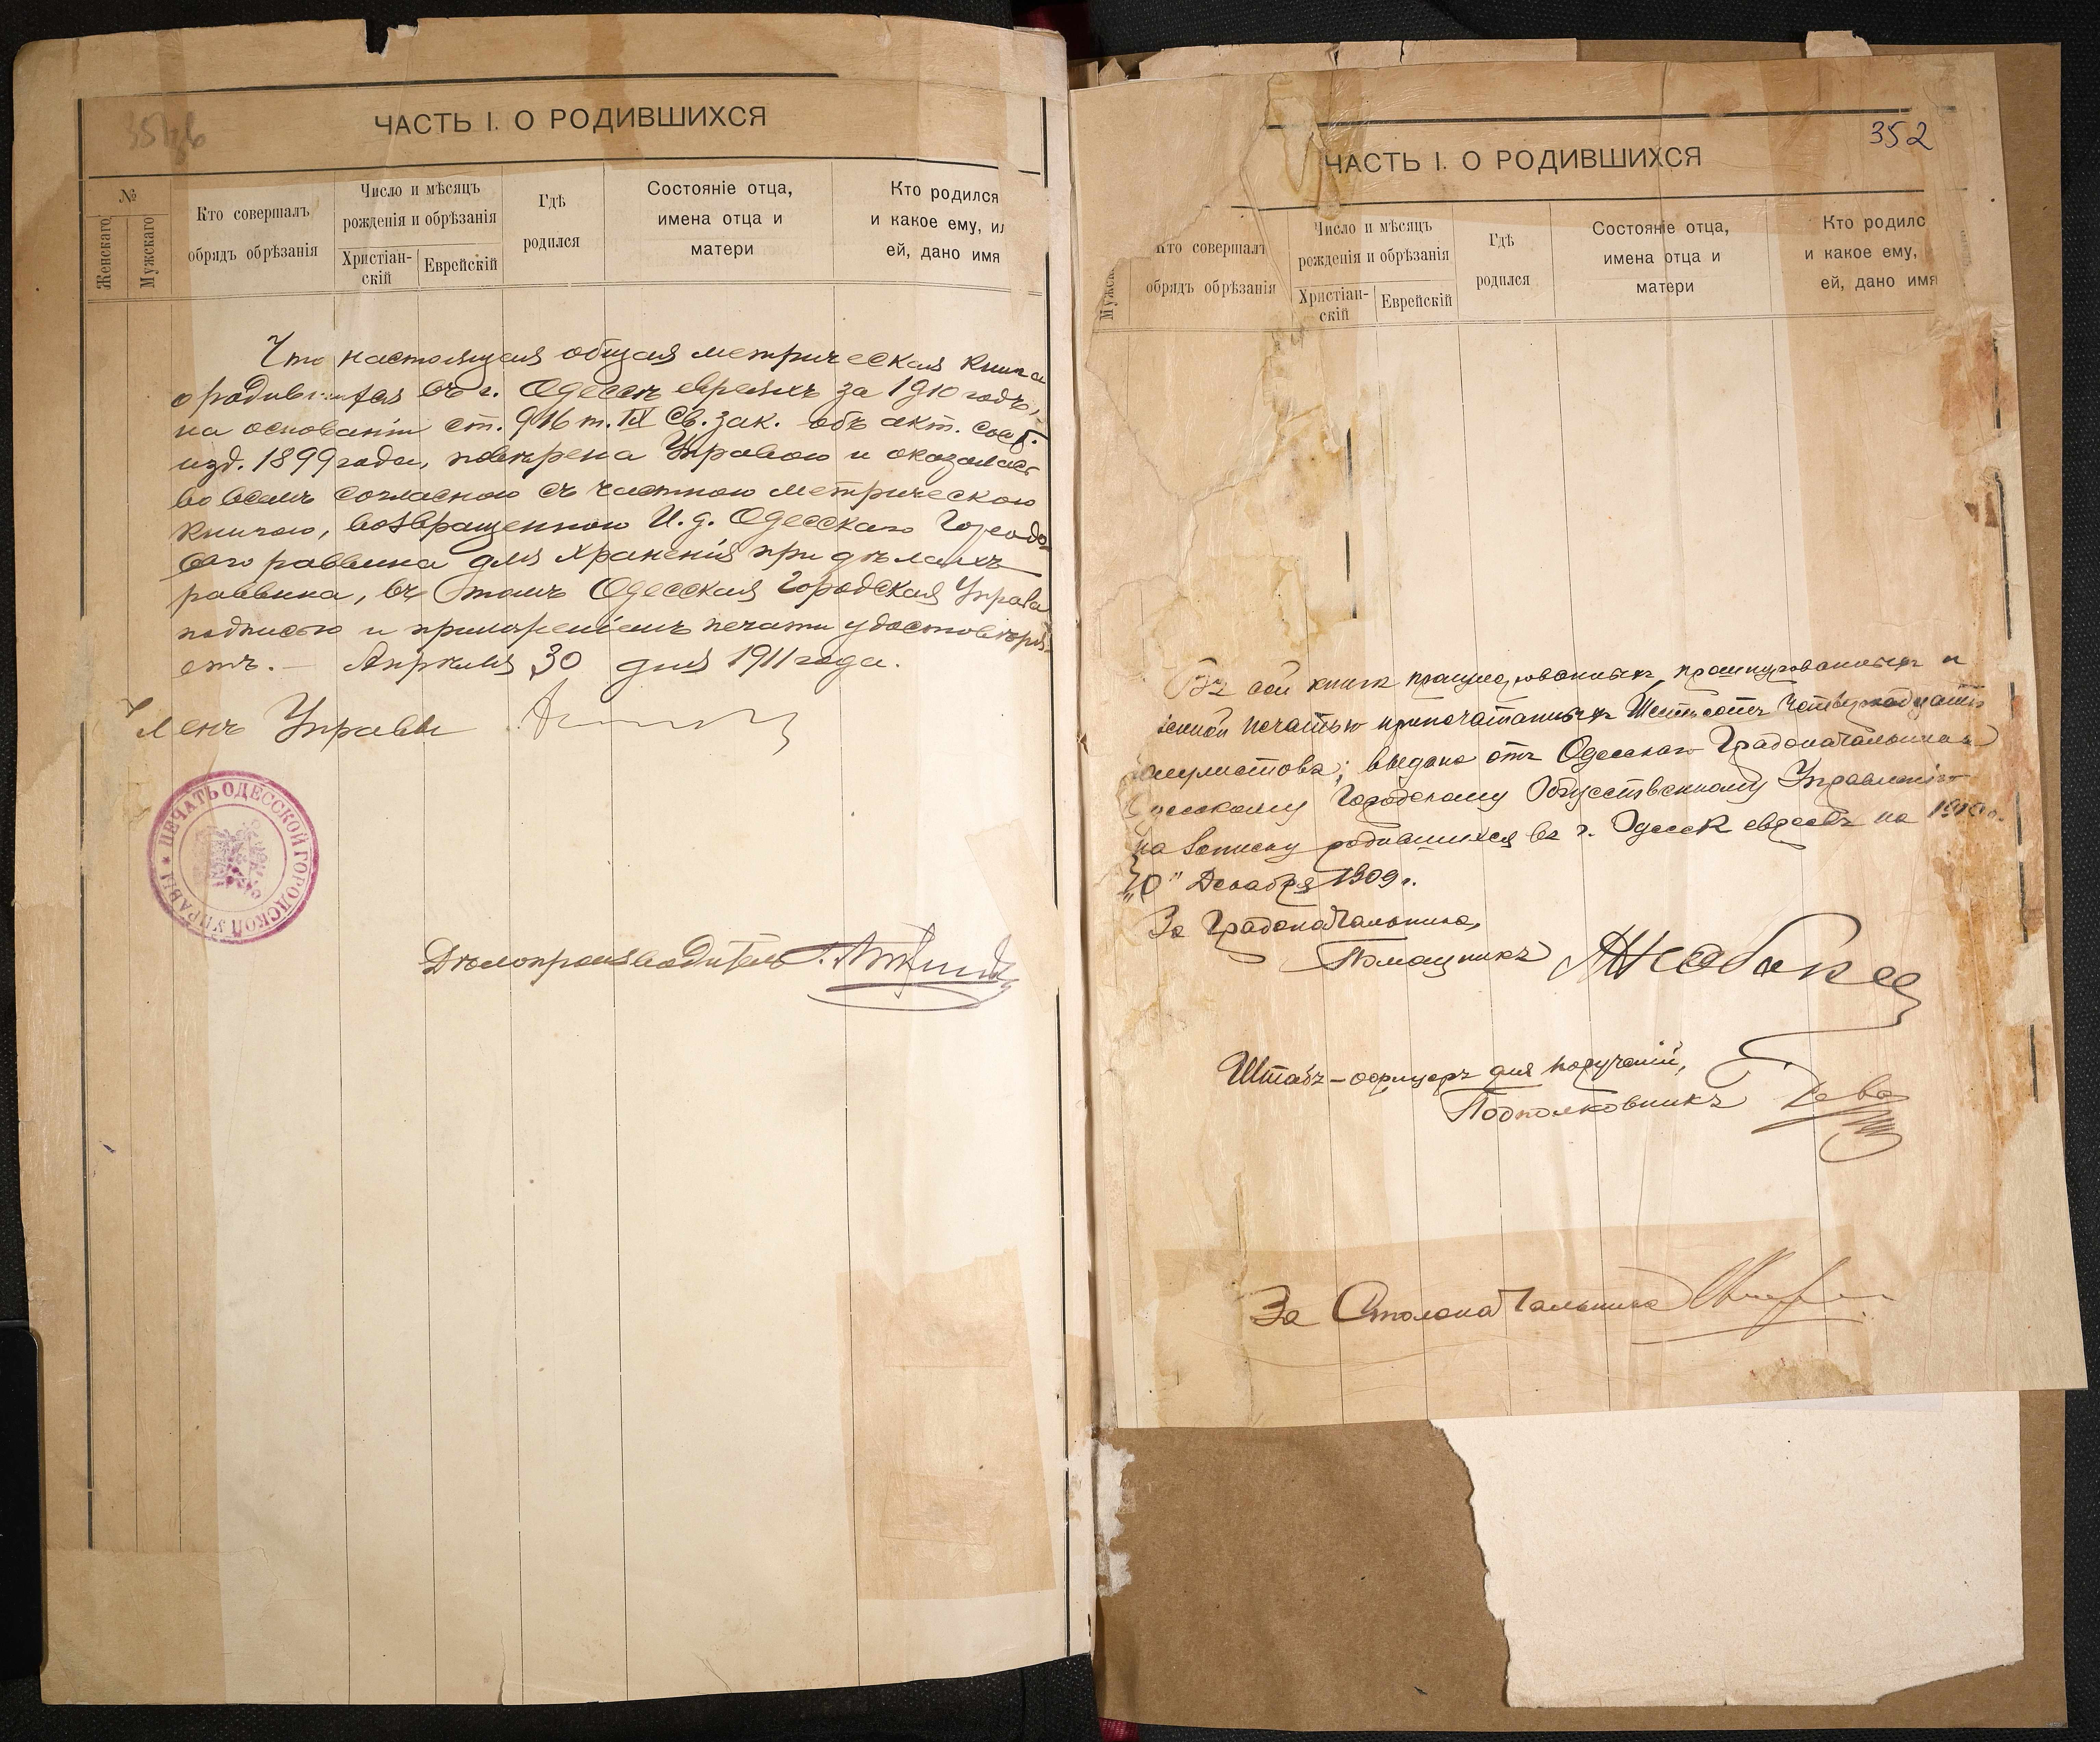 ЧАСТЬ I. О РОДИВШИХСЯ
№
Женскаго
Мужскаго
Кто совершалъ
обрядъ обрѣзанія
Число и мѣсяцъ
рожденія и обрѣзанія
Христіан-
скій
Еврейскій
Гдѣ
родился
Состояніе отца,
имена отца и
матери
Кто родился
и какое ему, ил
ей, дано имя
Что настоящая общая метрическая книга
о родившихся въ г. Одессѣ евреяхъ за 1910 годъ,
на основаніи ст. 916 т. IX Св. зак. объ акт. сост.
изд. 1899 года, повѣрена Управою и оказалась
во всемъ согласною съ частною метрическою
книгою, возвращенною И. д. Одесскаго Городо-
вого раввина для храненія при дѣлахъ
раввина, въ томъ Одесская Городская Управа
подписью и приложеніемъ печати удостовѣря-
етъ. — Апрѣля 30 дня 1911 года.
Членъ Управы
ПЕЧАТЬ ОДЕССКОЙ ГОРОДСКОЙ УПРАВЫ
Дѣлопроизводитель
352
ЧАСТЬ I. О РОДИВШИХСЯ
Мужск
Кто совершалъ
обрядъ обрѣзанія
Число и мѣсяцъ
рожденія и обрѣзанія
Христіан-
скій
Еврейскій
Гдѣ
родился
Состояніе отца,
имена отца и
матери
Кто родилс
и какое ему,
ей, дано имя
Въ сей книгѣ пронумерованныхъ, прошнурованныхъ и
зенной печатью припечатанныхъ Шестьсотъ четырнадцать
полулистовъ; выдана отъ Одесскаго Градоначальника
Одесскому Городскому Общественному Управленію
на записку родившихся въ г. Одессѣ евреевъ на 1910 г.
"10" Декабря 1909 г.
За Градоначальника,
Помощникъ
Штабъ-офицеръ для порученій,
Подполковникъ
За Столоначальника